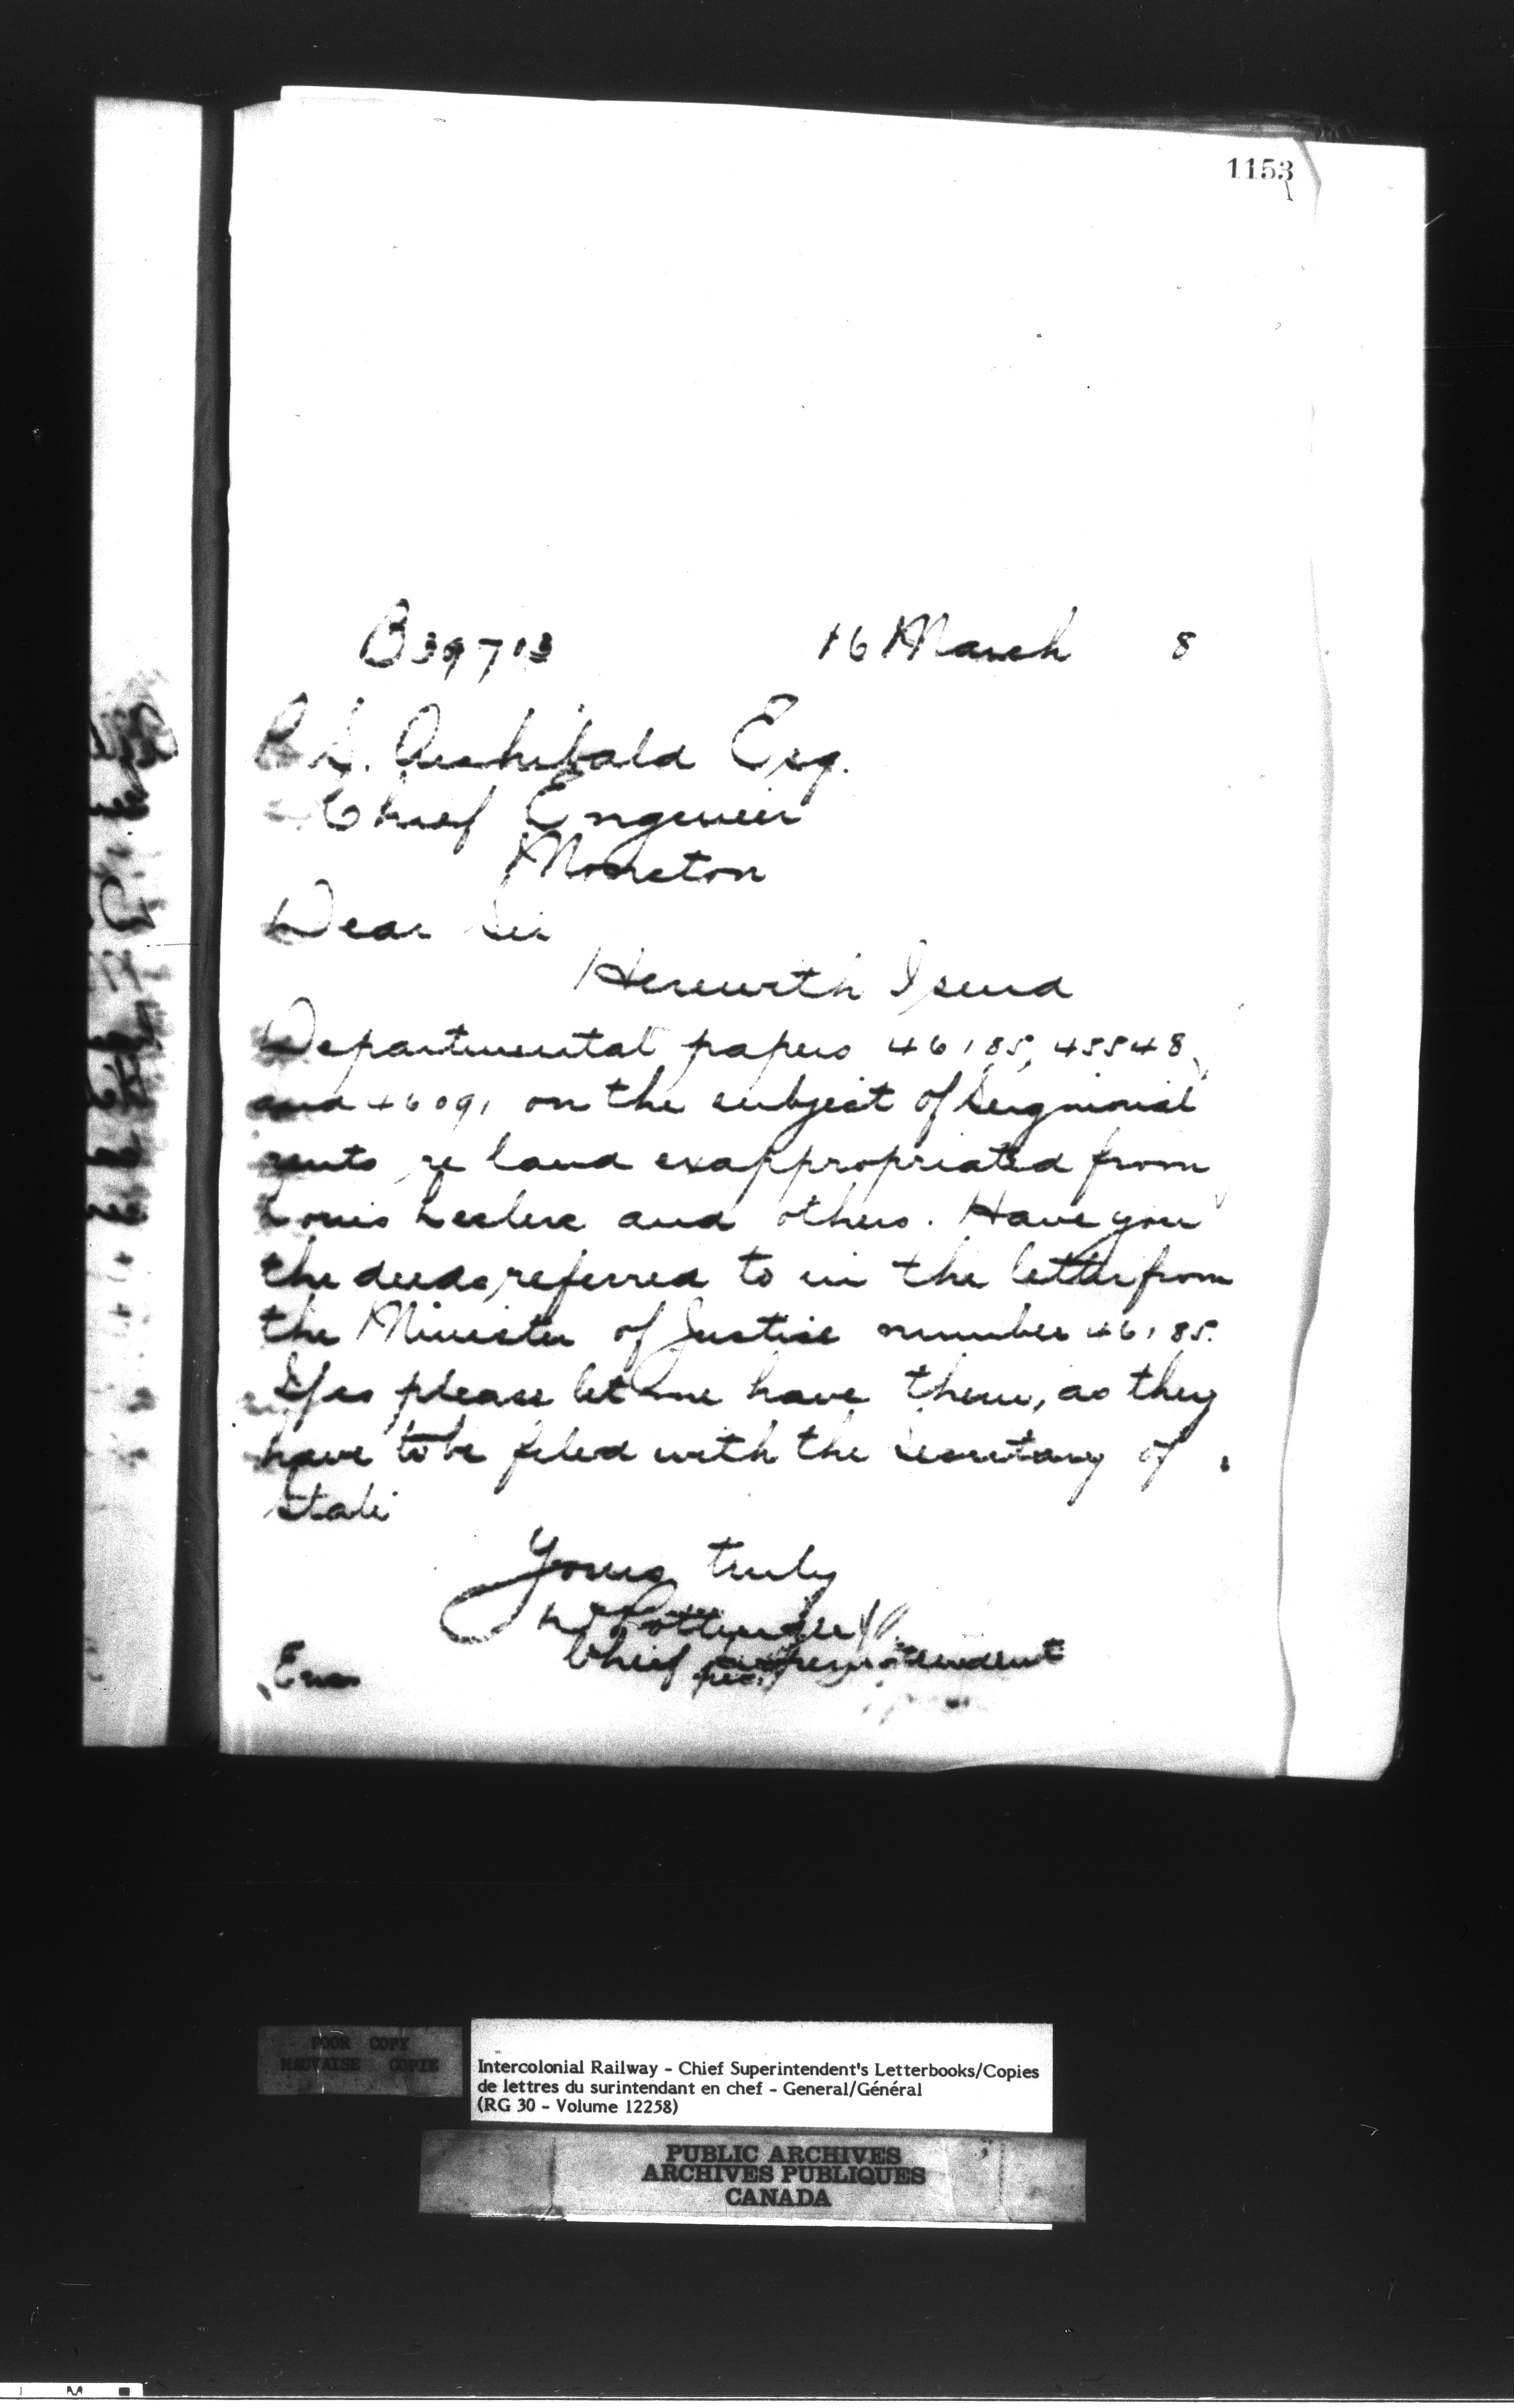 1153
B39713 16 March 8
P.S. Archibald Esq.
Chief Engineer
Moncton
Dear Sir
Herewith I send
Departmental papers 46185, 45548,
and 46091 on the subject of Seigniorial
rents re land exappropriated from
Louis Leclerc and others. Have you
the deeds referred to in the letter from
the Minister of Justice number 46185.
If so please let me have them, as they
have to be filed with the Secretary of
State
Yours truly
D Pottinger
Chief Superintendent
Enc
POOR COPY
MAUVAISE COPIE
Intercolonial Railway - Chief Superintendent's Letterbooks/Copies
de lettres du surintendant en chef - General/Général
(RG 30 - Volume 12258)
PUBLIC ARCHIVES
ARCHIVES PUBLIQUES
CANADA